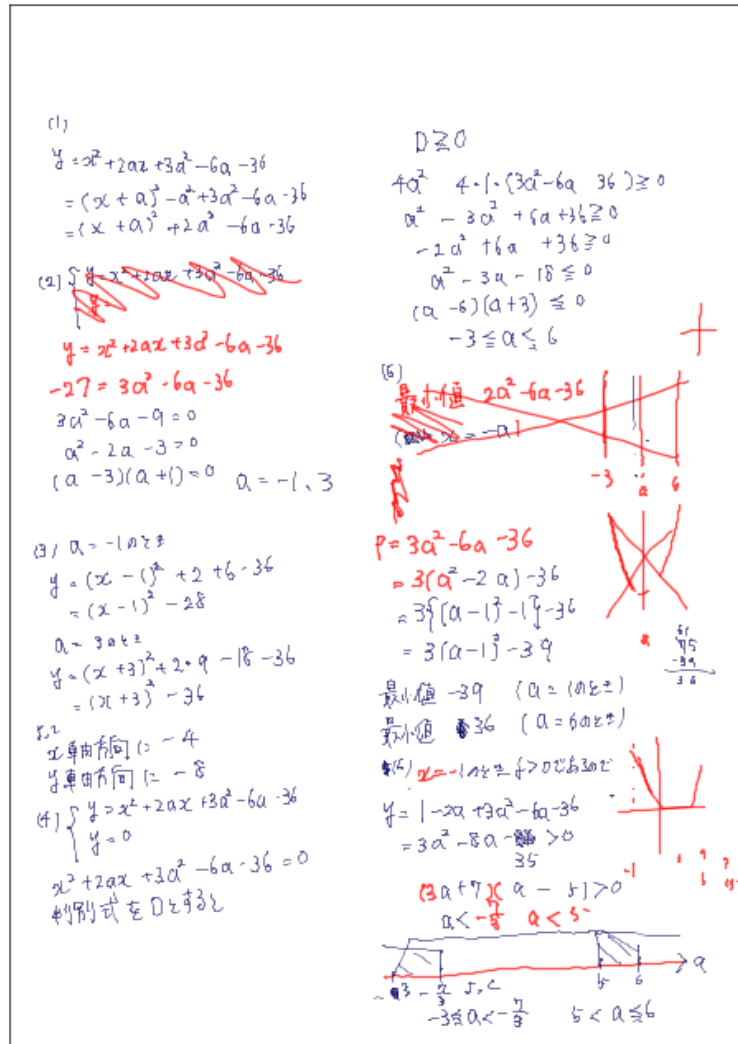 (1)
y=x²+2ax+3a²-6a-36
=(x+a)²-a²+3a²-6a-36
=(x+a)²+2a²-6a-36
(2) { y=x²+2ax+3a²-6a-36
y=
y=x²+2ax+3a²-6a-36
-27=3a²-6a-36
3a²-6a-9=0
a²-2a-3=0
(a-3)(a+1)=0 a=-1、3
(3) a=-1のとき
y=(x-1)²+2+6-36
=(x-1)²-28
a=3のとき
y=(x+3)²+2・9-18-36
=(x+3)²-36
より
x軸方向に-4
y軸方向に-8
(4) { y=x²+2ax+3a²-6a-36
y=0
x²+2ax+3a²-6a-36=0
判別式をDとすると
D≧0
4a² 4・1・(3a²-6a 36)≧0
a²-3a²+6a+36≧0
-2a²+6a+36≧0
a²-3a-18≦0
(a-6)(a+3)≦0
-3≦a≦6
(5)
最小値 2a²-6a-36
x=-a
-3 a 6
P=3a²-6a-36
=3(a²-2a)-36
=3{(a-1)²-1}-36
=3(a-1)²-39
a
75
-39
36
最小値 -39 (a=1のとき)
最小値 36 (a=6のとき)
(6) x=-1のとき y>0であるので
y=1-2a+3a²-6a-36
=3a²-8a-35>0
-1
(3a+7)(a-5)>0
a<-7/3 a<5
-3 -7/3 5 6 a
より
-3≦a<-7/3 5<a≦6